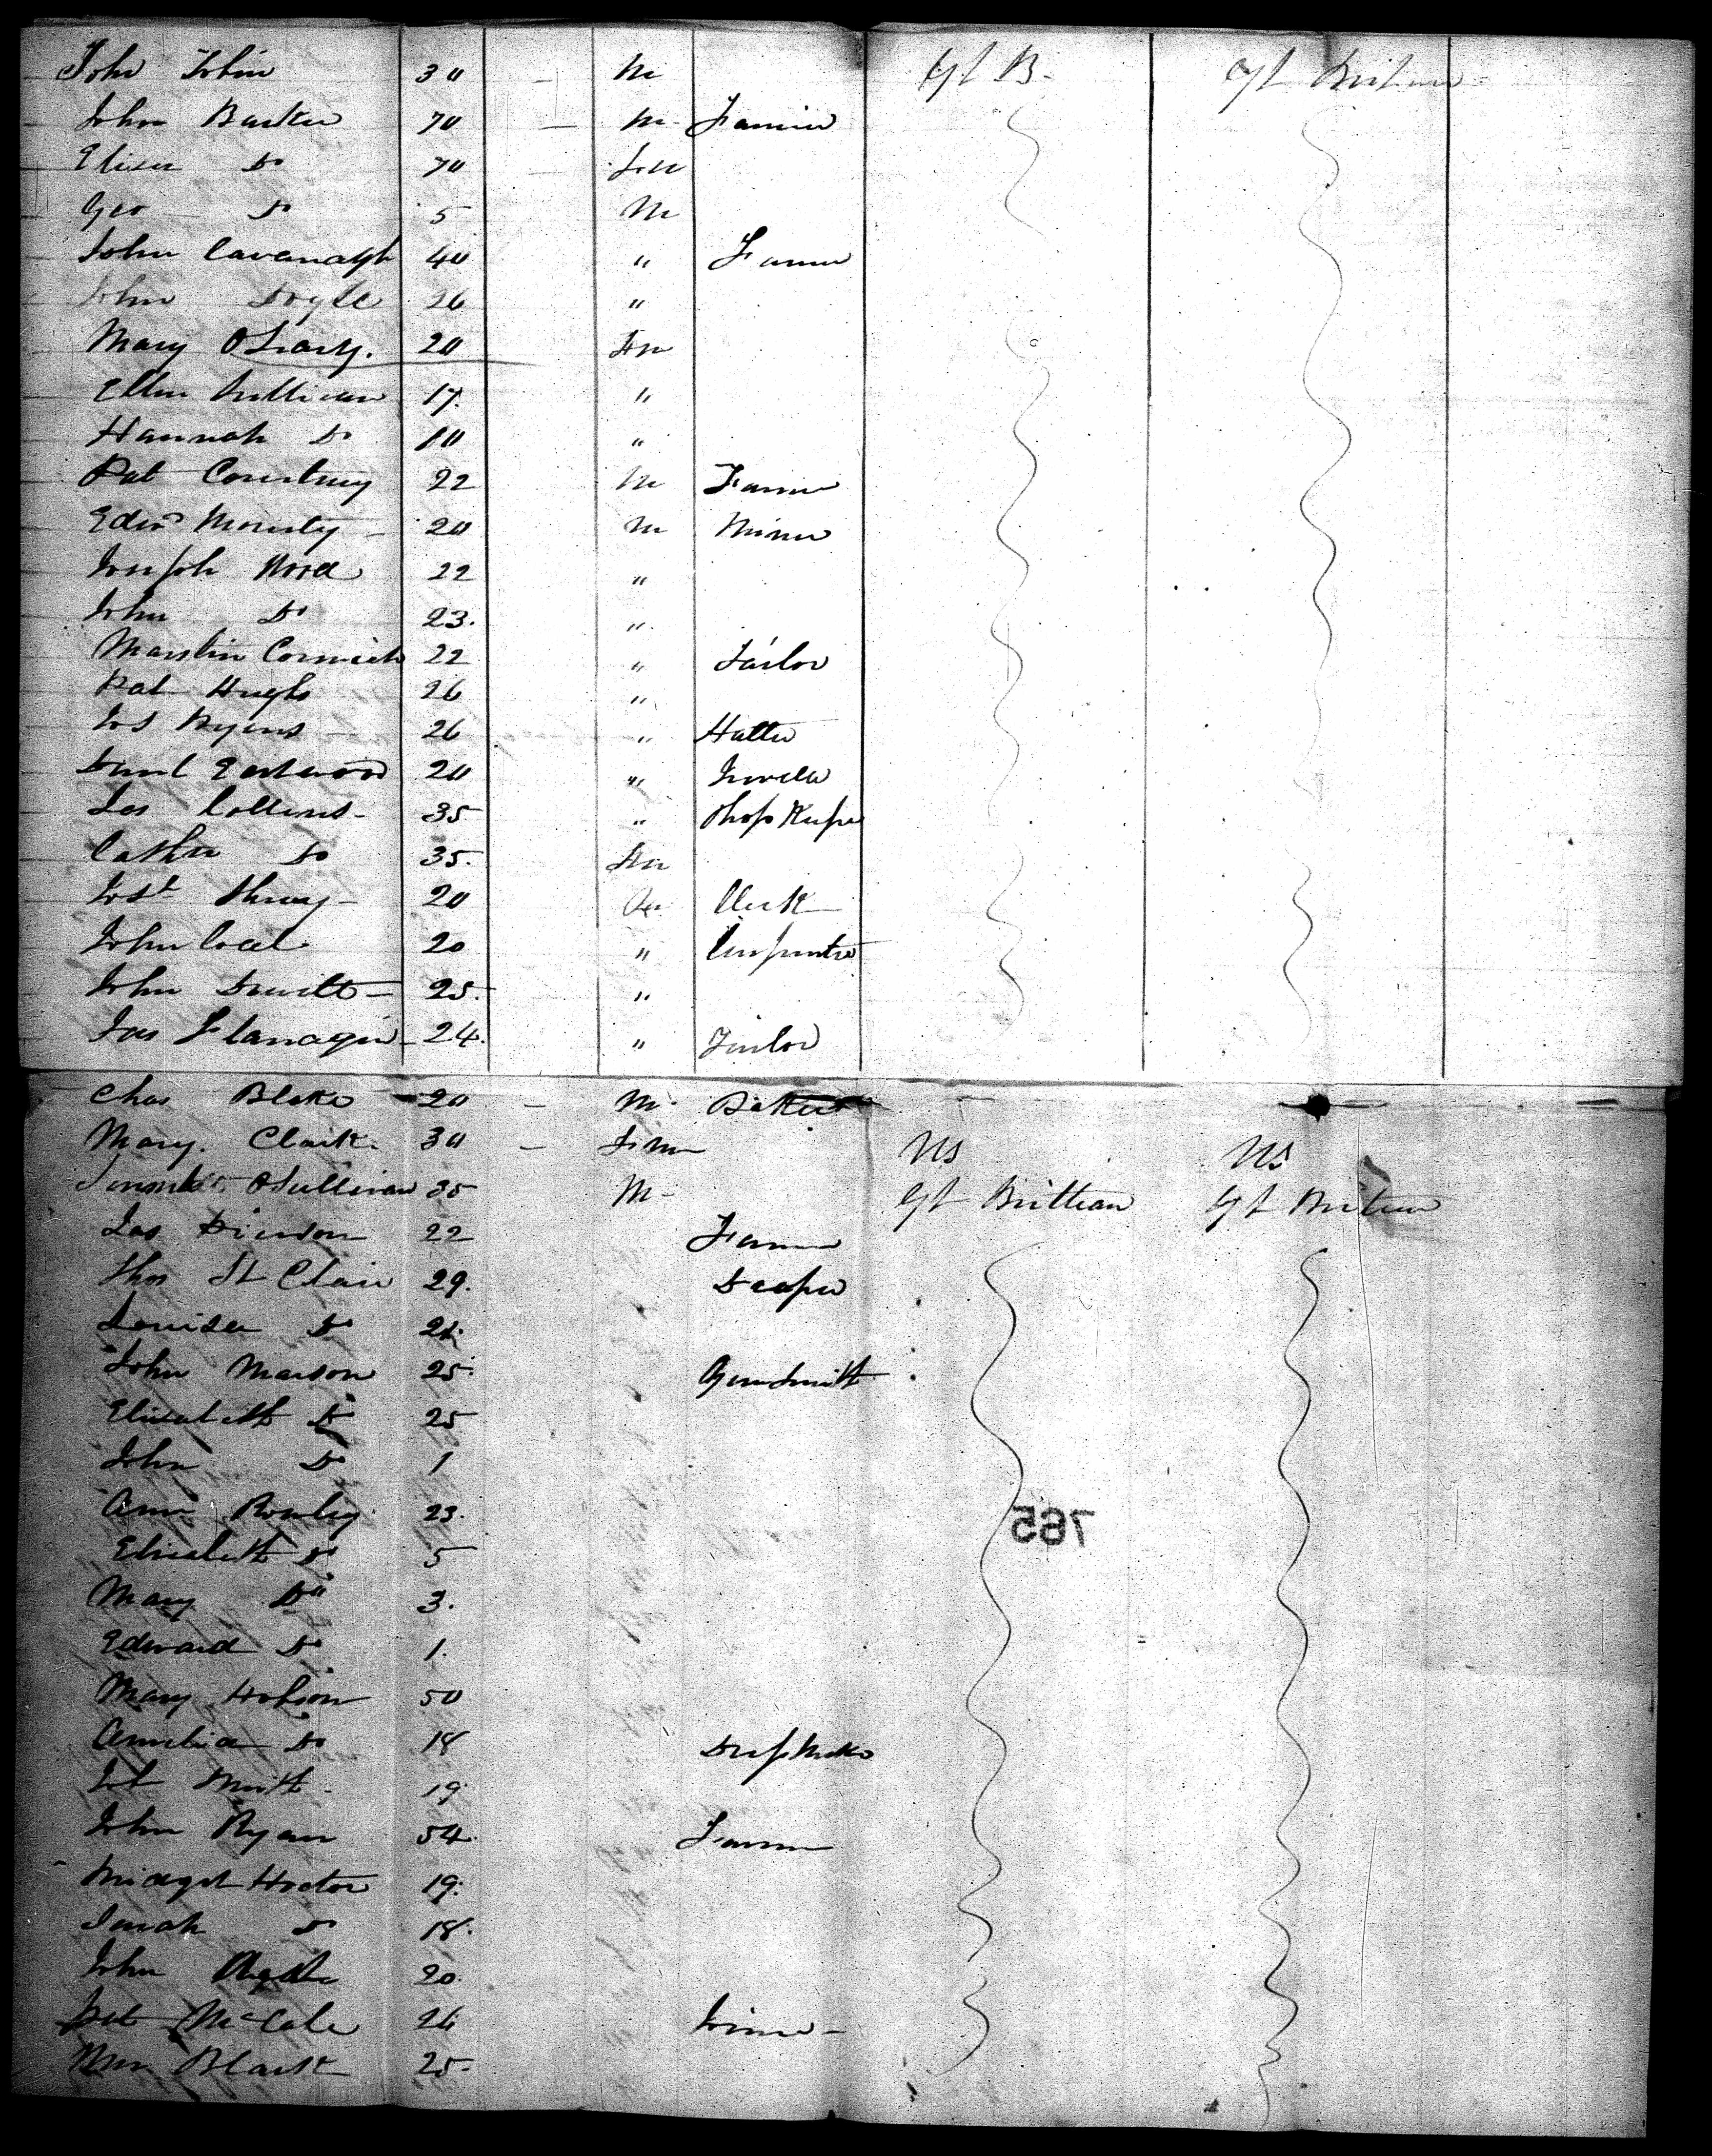 John Tobin 30 — M Gt B- Gt Britain
John Barker 70 — M- Farmer
Eliza Do 70 Fem
Geo Do 5 M
John Cavanagh 40 " Farmer
John Doyle 26 "
Mary OLeary. 20 Fem
Ellen Sullivan 17. "
Hannah Do 10 "
Pat Courtney 22 M Farmer
Edwd Mourty 20 M Miner
Joseph Wood 22 "
John Do 23. "
Cormick 22 " Tailor
Pat Hughs 26 "
Jos Byens 26 " Hatter
Danl Eastwood 20 " Jeweler
Jas Collins- 35 " Shop Keeper
Cathe Do 35. Fem
20 Clerk
John Coal 20 " Carpenter
John 25. "
Jas Flanagin 24. " Tailor
Chas Blake 20 — M- Baker
Mary. Clark. 30 — Fem US US
OSullivan 35 M- Gt Brittian Gt Britian
Jas 22 Farmer
Thos St Clair 29. Draper
Louisa Do 21.
John Marson 25. Gunsmith
Elizabeth Do 25
John Do 1
Ann Rowley 23.
Elizabeth Do 5
Mary Do 3.
765
Edward Do 1.
Mary Hobson 50
Amelia Do 18 Dress Maker
Smith 19
John Ryan 54. Farmer
Bridget Hector 19.
Sarah Do 18.
John 20.
Pat McCale 26
Black 25.